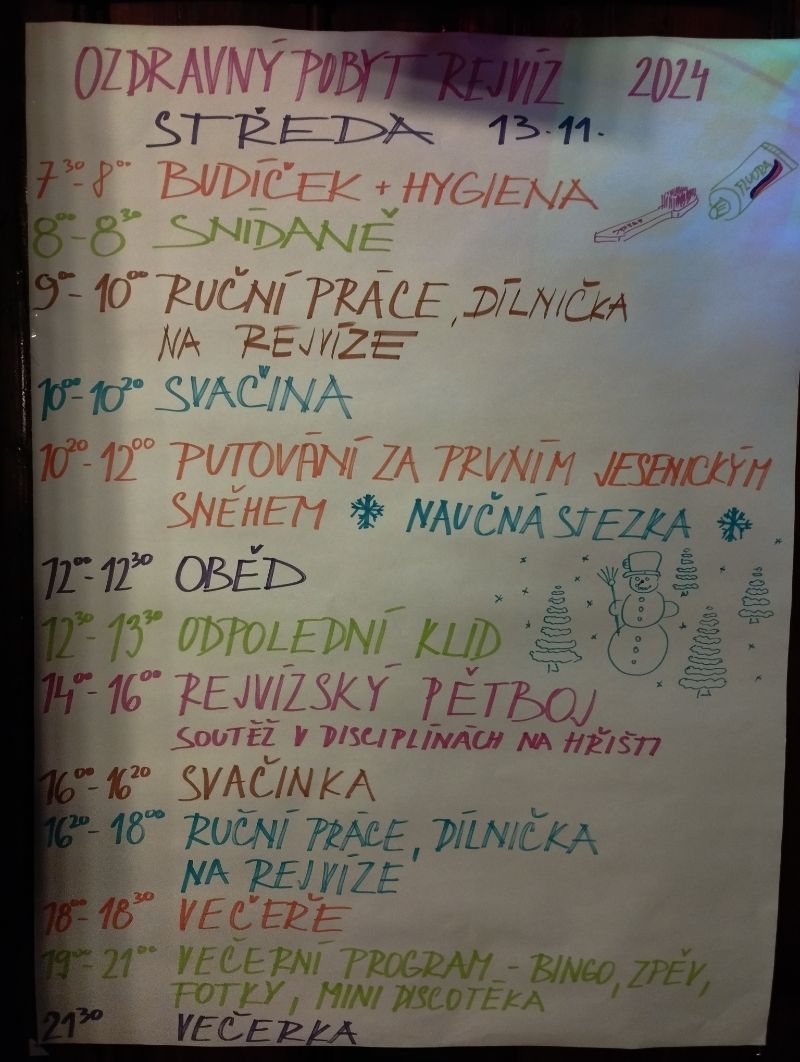 OZDRAVNÝ POBYT REJVÍZ 2024
STŘEDA 13.11.
7³⁰-8⁰⁰ BUDÍČEK + HYGIENA
8⁰⁰-8³⁰ SNÍDANĚ
9⁰⁰-10⁰⁰ RUČNÍ PRÁCE, DÍLNIČKA
NA REJVÍZE
10⁰⁰-10²⁰ SVAČINA
10²⁰-12⁰⁰ PUTOVÁNÍ ZA PRVNÍM JESENICKÝM
SNĚHEM NAUČNÁ STEZKA
12⁰⁰-12³⁰ OBĚD
12³⁰-13³⁰ ODPOLEDNÍ KLID
14⁰⁰-16⁰⁰ REJVÍZSKÝ PĚTBOJ
SOUTĚŽ V DISCIPLÍNÁCH NA HŘIŠTI
16⁰⁰-16²⁰ SVAČINKA
16²⁰-18⁰⁰ RUČNÍ PRÁCE, DÍLNIČKA
NA REJVÍZE
18⁰⁰-18³⁰ VEČEŘE
19⁰⁰-21⁰⁰ VEČERNÍ PROGRAM - BINGO, ZPĚV,
FOTKY, MINI DISCOTÉKA
21³⁰ VEČERKA